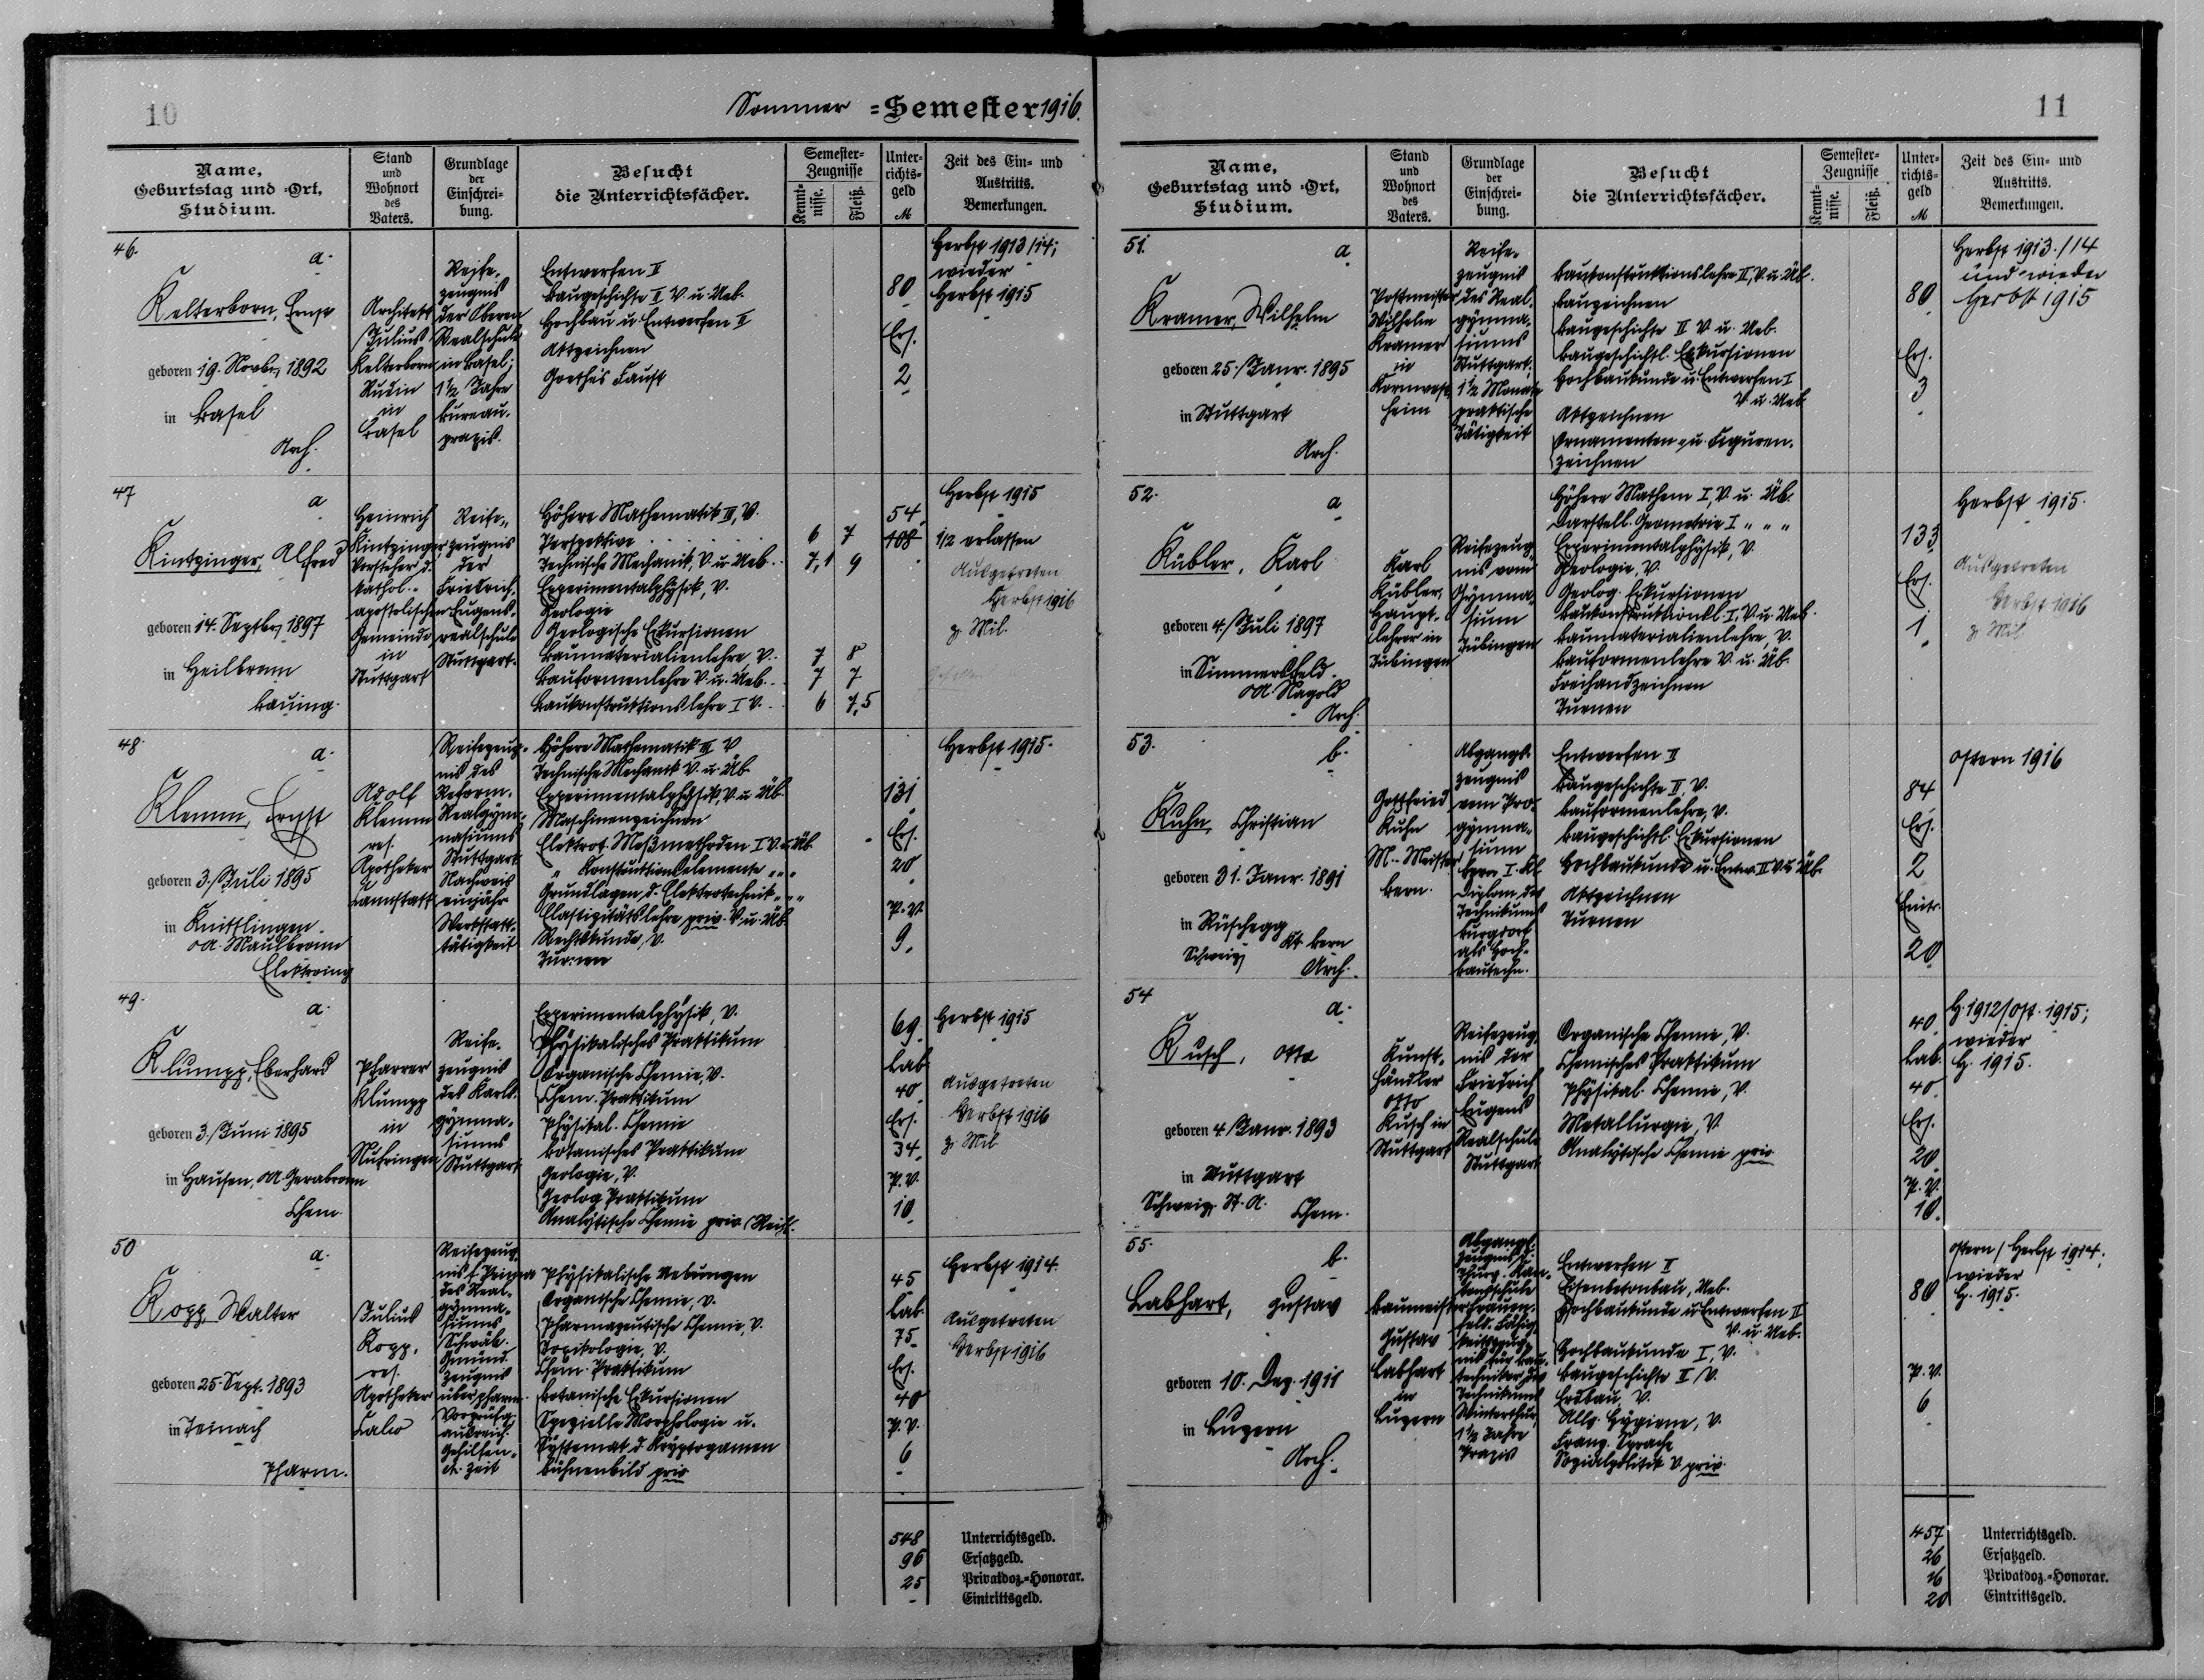 10
Sommer =Semester 1916.
Name,
Geburtstag und =Ort,
Studium.
Stand
und
Wohnort
des
Vaters.
Grundlage
der
Einschrei-
bung.
Besucht
die Unterrichtsfächer.
Semester-
Zeugnisse
Kennt-
nisse.
Fleiß.
Unter-
richts-
geld
M
Zeit des Ein= und
Austritts.
Bemerkungen.
46.
a.
Kelterborn, Ernst
geboren 19. Novbr. 1892
in Basel
Arch.
Architekt
Julius
Kelterborn
in
Basel
Reife-
zeugnis
der Oberen
Realschule
in Basel;
1 1/2 Jahre
Bureau-
praxis.
Entwerfen II
Baugeschichte II V. u. Ueb.
Hochbau u. Entwerfen II
Aktzeichnen
Goethes Faust
80
Ers.
2
Herbst 1913/14;
wieder
Herbst 1915
47
a
Kintzinger, Alfred
geboren 14. Septbr. 1897
in Heilbronn
Bauing.
Heinrich
Kintzinger,
Vorsteher d.
kathol.-
apostolischen
Gemeinde
in
Stuttgart
Reife-
zeugnis
der
Friedrich-
Eugens-
realschule
Stuttgart.
Höhere Mathematik III, V.
Perspektive 6 7
Technische Mechanik, V. u. Ueb. 7,1 9
Experimentalphysik, V.
Geologie
Geologische Exkursionen
Baumaterialienlehre, V. 7 8
Bauformenlehre V. u. Ueb. 7 7
Baukonstruktionslehre I V. 6 7,5
54
108
Herbst 1915
1/2 erlassen
Ausgetreten
Herbst 1916
z. Mil.
48.
a.
Klemm, Ernst
geboren 3. Juli 1895
in Knittlingen.
OA. Maulbronn
Elektroing
Adolf
Klemm
res.
Apotheker
Cannstatt
Reifezeug-
nis des
Reform-
Realgym-
nasiums
Stuttgart
Nachweis
einjähr
Werkstatt-
tätigkeit
Höhere Mathematik III V
Technische Mechanik V. u. Üb.
Experimentalphysik, V. u. Üb.
Maschinenzeichnen
Elektrot. Meßmethoden I V. u. Üb.
" Konstruktionselemente " " "
Grundlagen d. Elektrotechnik " " "
Elastizitätslehre priv. V. u. Üb.
Rechtskunde, V.
Turnen
131
Ers.
20
P. V.
9.
Herbst 1915.
49.
a.
Klumpp, Eberhard
geboren 3. Juni 1895
in Hausen, OA. Gerabronn
Chem.
Pfarrer
Klumpp
in
Nufringen
Reife-
zeugnis
des Karls-
gymna-
siums
Stuttgart
Experimentalphysik, V.
Physikalisches Praktikum
Organische Chemie, V.
Chem. Praktikum
Physikal. Chemie
Botanisches Praktikum
Geologie, V.
Geolog Praktikum
Analytische Chemie priv.
69.
Lab
40.
Ers.
34.
P. V.
10
Herbst 1915
Ausgetreten
Herbst 1916
z. Mil
50
a.
Kopp, Walter
geboren 25. Sept. 1893
in Teinach
Pharm.
Julius
Kopp,
res.
Apotheker
Calw
Reifezeug-
nis f. Prima
des Real-
gymna-
siums
Schwäb.
Gmünd.
Zeugnis
über pharm.
Vorprüfg.
ausreich.
Gehilfen-
zeit
Physikalische Uebungen
Organische Chemie, V.
Pharmazeutische Chemie, V.
Toxikologie, V.
Chem. Praktikum
Botanische Exkursionen
Spezielle Morphologie u.
Systemat. d. Kryptogamen
Bühnenbild priv
45
Lab.
75
Ers.
40
P. V.
6
Herbst 1914.
Ausgetreten
Herbst 1916
548 Unterrichtsgeld.
96 Ersatzgeld.
25 Privatdoz.=Honorar.
- Eintrittsgeld.
11
Name,
Geburtstag und =Ort,
Studium.
Stand
und
Wohnort
des
Vaters.
Grundlage
der
Einschrei-
bung.
Besucht
die Unterrichtsfächer.
Semester-
Zeugnisse
Kennt-
nisse.
Fleiß.
Unter-
richts-
geld
M
Zeit des Ein= und
Austritts.
Bemerkungen.
51.
a
Kramer, Wilhelm
geboren 25. Janr. 1895
in Stuttgart
Arch.
Postmeister
Wilhelm
Kramer
in
Kornwest-
heim
Reife-
zeugnis
des Real-
gymna-
siums
Stuttgart;
1 1/2 Monate
praktische
Tätigkeit
Baukonstruktionslehre II, V. u. Üb.
Bauzeichnen
Baugeschichte II V. u. Ueb.
Baugeschichtl. Exkursionen
Hochbaukunde u. Entwerfen I
V. u. Ueb
Aktzeichnen
Ornamenten- u. Figuren-
zeichnen
80
Ers.
3
Herbst 1913./14
und wieder
Herbst 1915
52.
a
Kübler, Karl
geboren 4. Juli 1897
in Simmersfeld.
OA. Nagold
Arch.
Karl
Kübler,
Haupt-
lehrer in
Tübingen
Reifezeug-
nis vom
Gymna-
sium
Tübingen
Höhere Mathem I, V. u. Üb.
Darstell. Geometrie I " " "
Experimentalphysik, V.
Geologie, V.
Geolog. Exkursionen
Baukonstruktionsl. I, V. u. Ueb.
Baumaterialienlehre, V.
Bauformenlehre V. u. Üb.
Freihandzeichnen
Turnen
133
Ers.
1
Herbst 1915.
Ausgetreten
Herbst 1916
z. Mil.
53.
b.
Kuhn, Christian
geboren 31. Janr. 1891
in Rüschegg
Kt. Bern
Schweiz
Arch.
Gottfried
Kuhn
M.-Meister
Bern.
Abgangs-
zeugnis
vom Pro-
gymna-
sium
Bern I. Kl.
Diplom des
Technikums
Burgdorf
als Hoch-
bautechn.
Entwerfen II
Baugeschichte II, V.
Bauformenlehre, V.
Baugeschichtl. Exkursionen
Hochbaukunde u. Entw. II V. u. Üb.
Aktzeichnen
Turnen
84
Ers.
2
Eintr.
20
Ostern 1916
54
a.
Kusch, Otto
geboren 4. Janr. 1893
in Stuttgart
Schweiz. St. A.
Chem.
Kunst-
händler
Otto
Kusch in
Stuttgart
Reifezeug-
nis der
Friedrich
Eugens
Realschule
Stuttgart
Organische Chemie, V.
Chemisches Praktikum
Physikal. Chemie, V.
Metallurgie, V.
Analytische Chemie priv
40
Lab.
40
Ers.
20
P. V.
10.
H. 1912/Ost. 1915;
wieder
H. 1915.
55.
b.
Labhart, Gustav
geboren 10. Dez. 1911
in Luzern
Arch.
Baumeister
Gustav
Labhart
in
Luzern
Abgangs-
zeugnis d.
Thurg. Kan-
tonsschule
Frauen-
feld. Fähig-
keitszeug-
nis für Bau-
techniker des
Technikums
Winterthur,
1 1/2 Jahre
Praxis
Entwerfen II
Eisenbetonbau, Ueb.
Hochbaukunde u. Entwerfen II
V. u. Ueb.
Hochbaukunde I, V.
Baugeschichte II V.
Erdbau, V.
Allg. Hygiene, V.
Franz. Sprache
Sozialpolitik V. priv.
80
P. V.
6
Ostern/Herbst 1914;
wieder
H. 1915.
457 Unterrichtsgeld.
26 Ersatzgeld.
16 Privatdoz.=Honorar.
20 Eintrittsgeld.